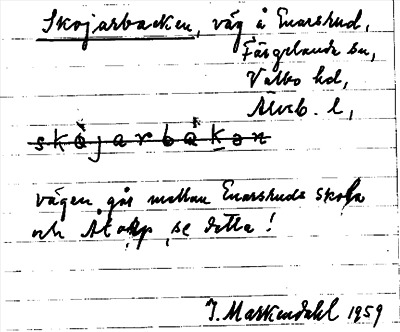 Skojarbacken, väg å Enarsrud,
Färgelanda sn,
Valbo hd,
Älvsb. l,
skojarbakən
vägen går mellan Enarsruds skola
och Åtorp, se detta!
J. Markendahl 1959